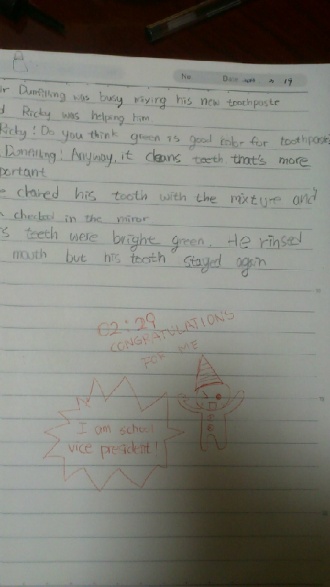 No. Date 19
Dumpling was busy mixing his new toothpaste
Ricky was helping him
Ricky! Do you think green is good color for toothpaste
Dumpling! Anyway, it cleans teeth that's more
portant
cleaned his tooth with the mixture and
checked in the mirror
s teeth were bright green. He rinsed
mouth but his teeth stayed again
02:29
CONGRATULATIONS
FOR ME
I am school
vice president!